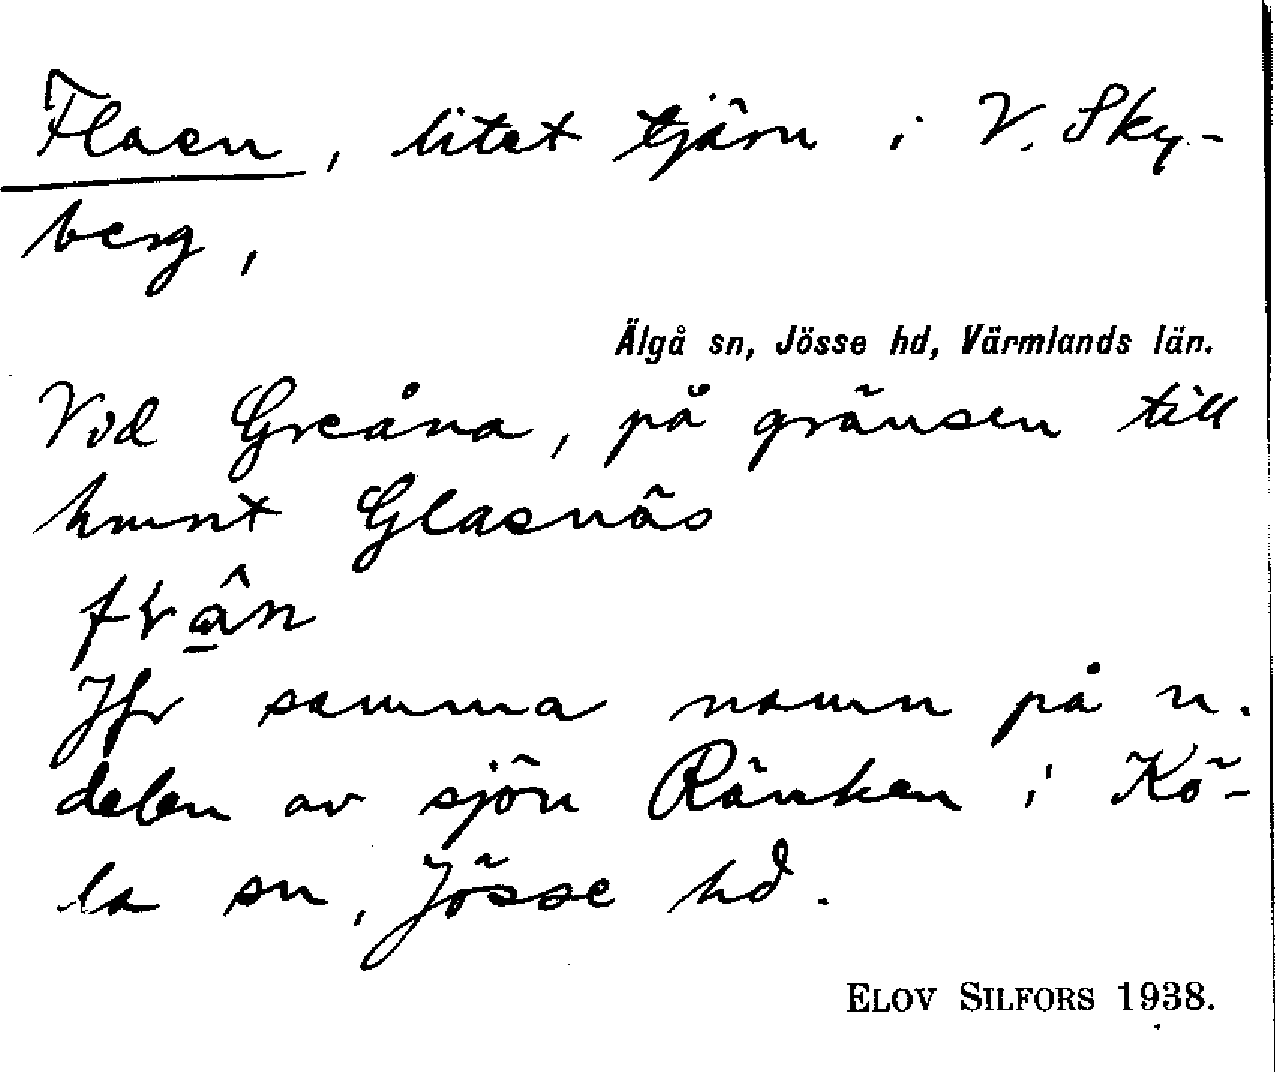 Flaen, litet tjärn i V. Sky-
berg,
Älgå sn, Jösse hd, Värmlands län.
Vid Greåna, på gränsen till
hmnt Glasnäs
Jfr samma namn på n.
delen av sjön Ränken i Kö-
la sn, Jösse hd.
ELOV SILFORS 1938.